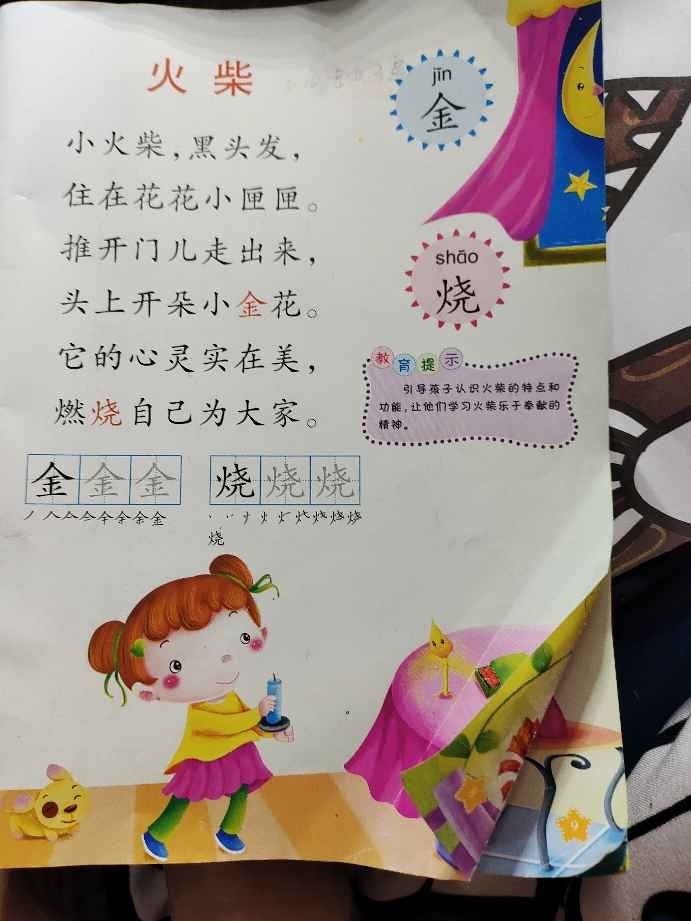 火柴
jīn
金
小火柴，黑头发，
住在花花小匣匣。
推开门儿走出来，
头上开朵小金花。
它的心灵实在美，
燃烧自己为大家。
shāo
烧
教育提示
引导孩子认识火柴的特点和
功能，让他们学习火柴乐于奉献的
精神。
金金金
烧烧烧
烧